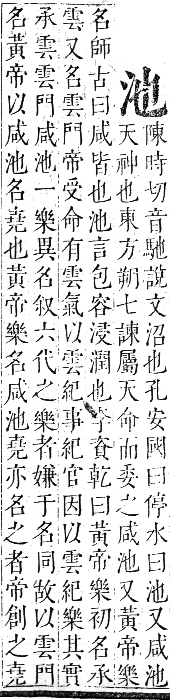 池
陳時切音馳說文沼也孔安國曰停水曰池又咸池
天神也東方朔七諫屬天命而委之咸池又黃帝樂
名師古曰咸皆也池言包容浸潤也李資乾曰黃帝樂初名承
雲又名雲門帝受命有雲氣以雲紀事紀官因以雲紀樂其實
承雲雲門咸池一樂異名叙六代之樂者嫌于名同故以雲門
名黃帝以咸池名堯也黃帝樂名咸池堯亦名之者帝創之堯